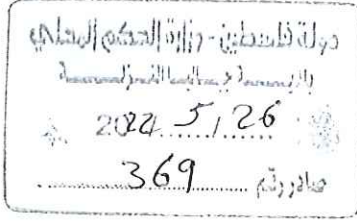 دولة فلسطين - وزارة الحكم المحلي
2022 / 5 / 26
صادر رقم ........ 369 ........